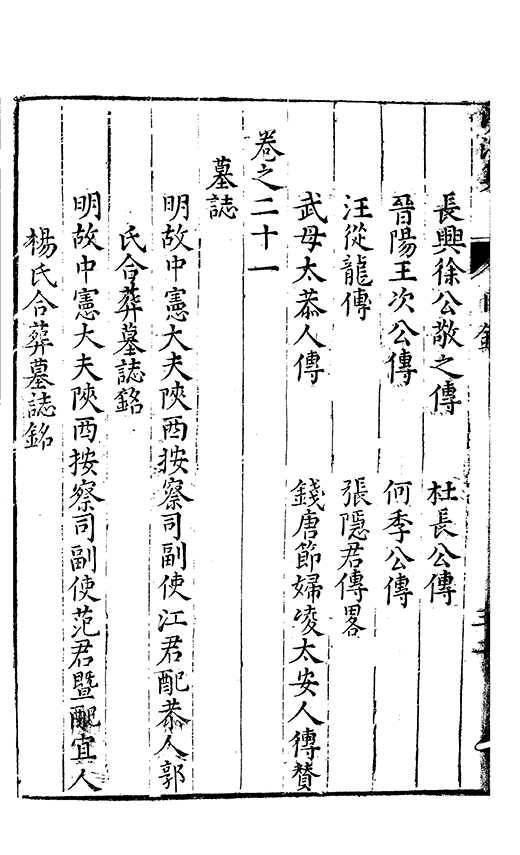 長興徐公敬之傳　杜長公傳
晉陽王次公傳　何季公傳
汪從龍傳　張隱君傳畧
武母太恭人傳　錢唐節婦凌太安人傳贊
卷之二十一
墓誌
明故中憲大夫陝西按察司副使江君配恭人郭
氏合葬墓誌銘
明故中憲大夫陝西按察司副使范君暨配宜人
楊氏合葬墓誌銘